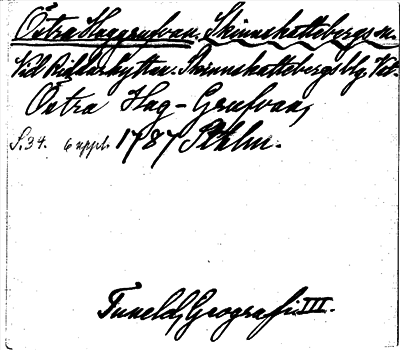 Östra Haggrufvan. Skinnskattebergs sn.
Vid Riddarhyttan. Skinnskattebergs blg. Vtl.
Östra Hag-Grufvan,
S. 34. 6 uppl. 1787 Sthlm.
Tuneld, Geografi III.